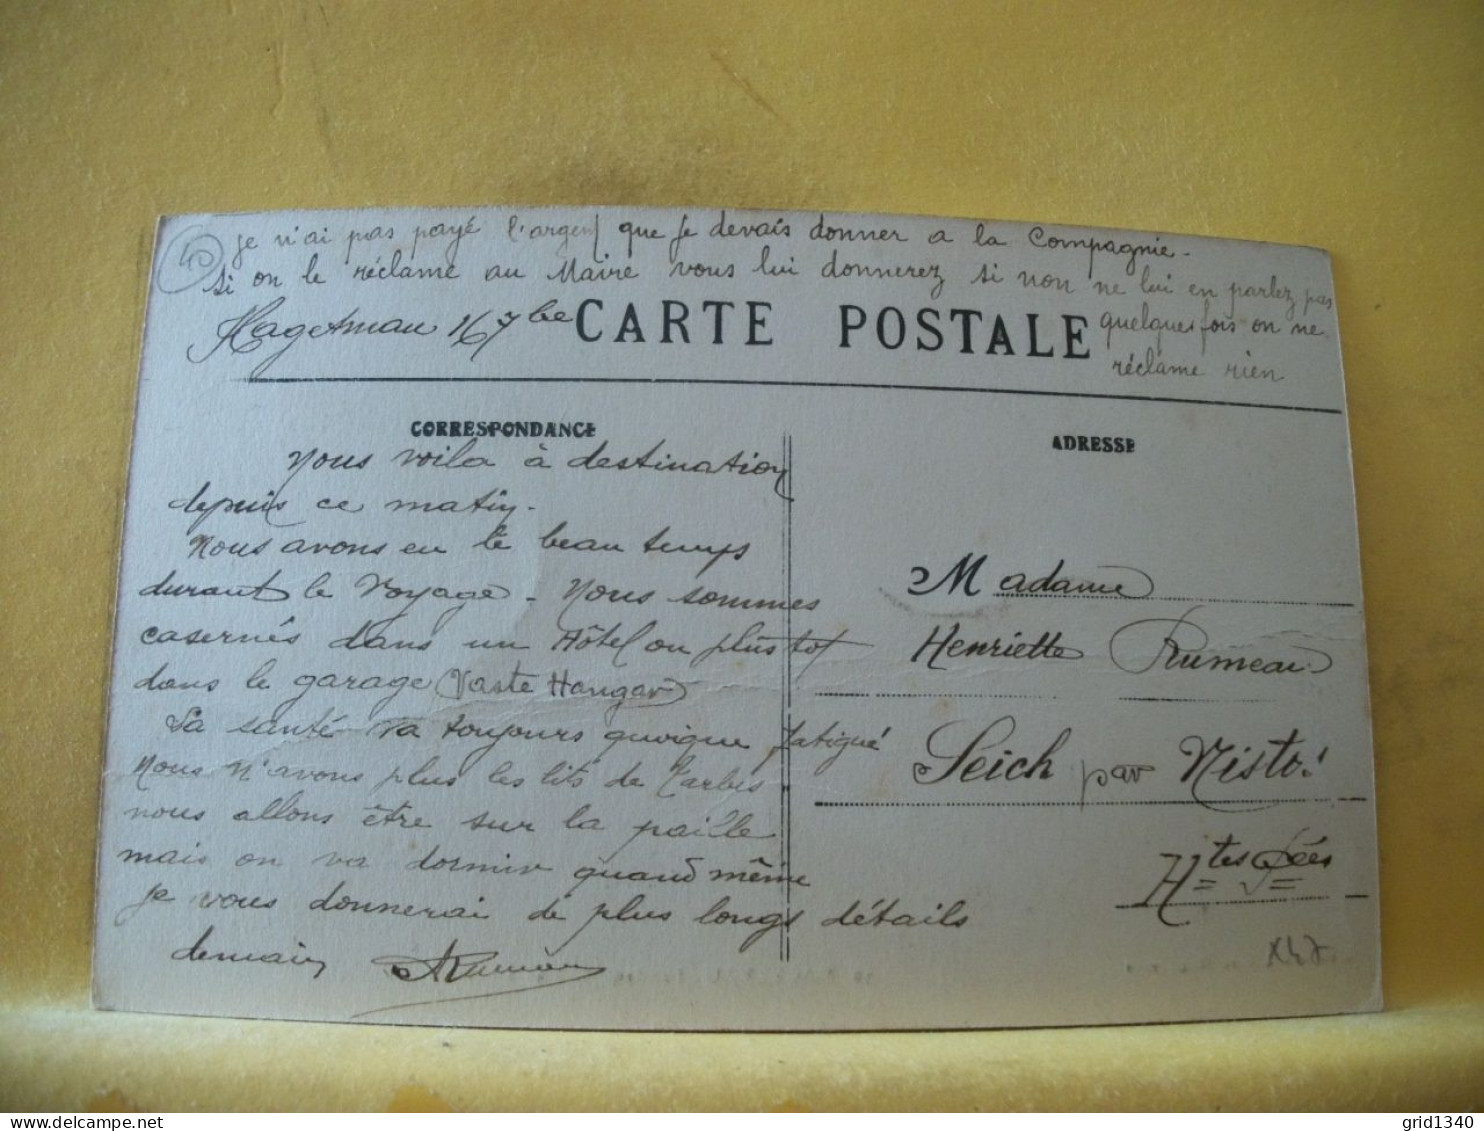 40
je n'ai pas payé l'argent que je devais donner a la Compagnie.
si on le réclame au Maire vous lui donnerez si non ne lui en parlez pas
quelques fois on ne
réclame rien
Hagetmau 16 7bre
CARTE POSTALE
CORRESPONDANCE
ADRESSE
Nous voila à destination
depuis ce matin.
Nous avons eu le beau temps
durant le voyage. Nous sommes
casernés dans un Hôtel ou plustot
dans le garage (Vaste Hangar)
La santé va toujours quoique fatigué
Nous n'avons plus les lits de Tarbes.
nous allons être sur la paille
mais on va dormir quand même
je vous donnerai de plus longs détails
demain
Madame
Henriette Rumeau
Seich par Nistos
Htes Pées
grid1340